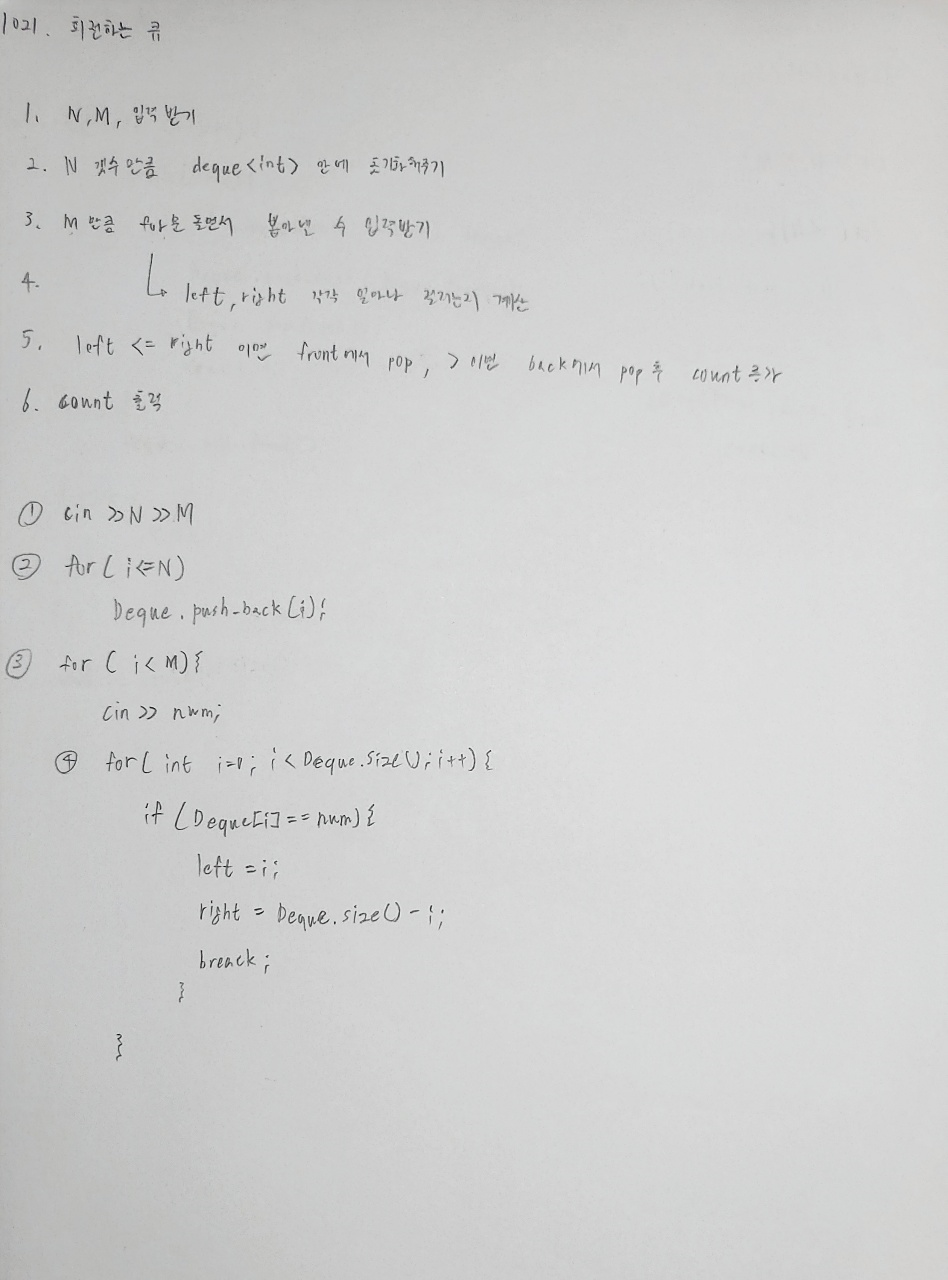 1021. 회전하는 큐
1. N, M, 입력 받기
2. N 갯수만큼 deque<int> 안에 초기화해주기
3. M 만큼 for문 돌면서 뽑아낼 수 입력받기
4. left, right 각각 얼마나 걸리는지 계산
5. left <= right 이면 front에서 pop, > 이면 back에서 pop 후 count 증가
6. count 출력
① cin >> N >> M
② for ( i<=N)
Deque.push-back(i);
③ for ( i < M) {
cin >> num;
④ for( int i=0; i < Deque.size(); i++) {
if (Deque[i] == num) {
left = i;
right = Deque.size() - i;
breack;
}
}